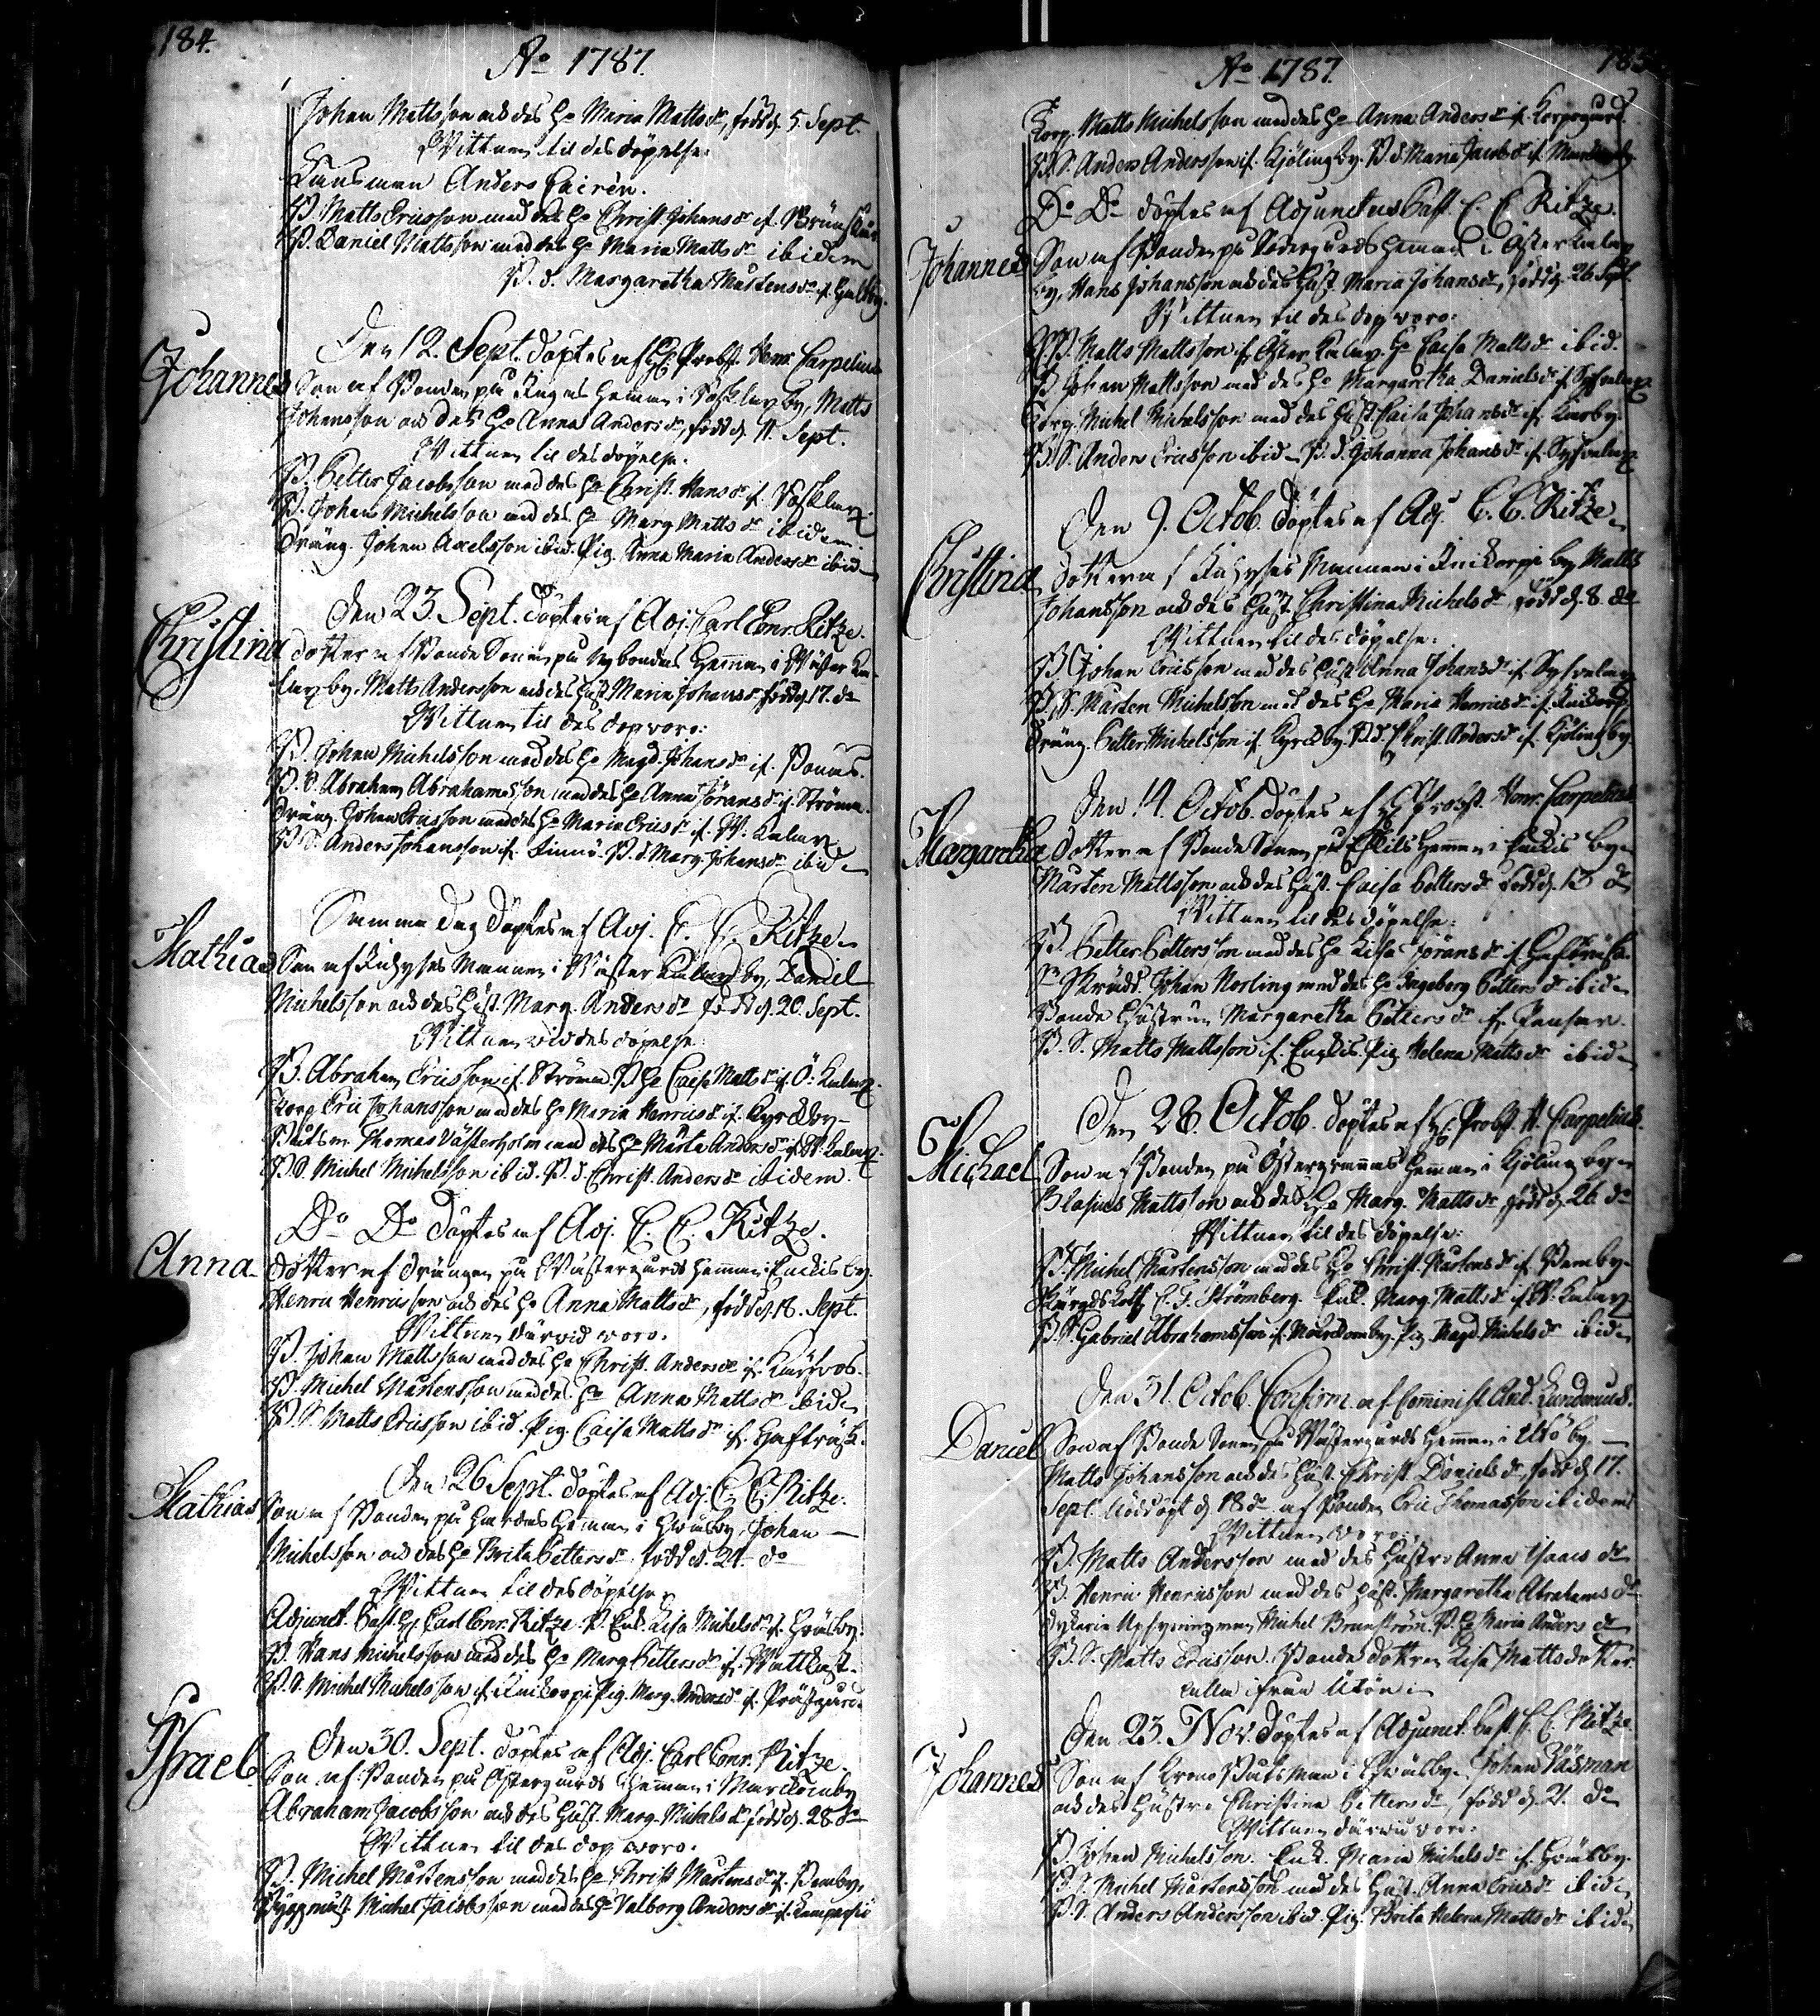 184.
Ao 1787.
Johan Mattsson och des Ho Maria Mattsdr, född d. 5. Sept.
Wittnen til des döpelse.
Länsman Anders Cairén.
B. Matts Ericsson med des Ho Christ. Johansdr if.
B. Daniel Mattsson med des Ho Maria Mattsdr ibidem
B. d. Margaretha Mårtensdr if. Galtby.
Johannes
Den 12. Sept. döptes af Hr Probst. Henr. Carpelius
Son af Bonden på hemman i by, Matts
Johansson och des Ho Anna Andersdr, född d. 11. Sept.
Wittnen til des döpelse.
B. Petter Jacobsson med des Ho Christ. Hansdr if.
B. Johan Michelsson med des Ho Marg Mattsdr ibidem.
Dräng. Johan Axelsson ibid. Pig. Anna Maria Andersdr ibid
Christina
Den 23. Sept. döptes af Adj. Carl Conr. Ritze.
dotter af Bonde Sonen på Nybondas hemman i Wäster Ka-
lax by. Matts Andersson och des Hust. Maria Johansdr född d. 17. do
Wittnen til des dop woro:
B. Johan Michelsson med des Ho Magd. Johansdr if.
B. S. Abraham Abrahamsson med des Ho Anna Jöransdr if. Strömma.
Dräng. Johan Ericsson med des Ho Maria Ericsdr if. W. Kalax
B. S. Anders Johansson if. B. d. Marg. Johansdr ibid
Mathias
Samma dag döptes af Adj. C. C. Ritze
Son af Inhyses Mannen i Wäster by, Daniel
Michelsson och des Hust. Marg. Andersdr född d. 20. Sept.
Wittnen wid des döpelse:
B. Abraham Ericsson if. Strömma. B. Ho Caisa Mattsdr if. Ö: Kalax
Korp. Eric Johansson med des Ho Maria Henricsdr if. Kyrckby
Båtsm. Thomas Västerholm med des Ho Märta Andersdr if. W. Kalax
B. S. Michel Michelsson ibid. B. d. Christ. Andersdr ibidem.
Anna
Do Do döptes af Adj. C. C. Ritze.
dotter af drängen på Wästergårds hemman i Finckis by.
Henric Henricsson och des Ho Anna Mattsdr, född d. 18. Sept.
Wittnen därwid woro.
B. Johan Mattsson med des Ho Christ. Andersdr if.
B. Michel Mårtensson med des Ho Anna Mattsdr ibid
B. S. Matts Ericsson ibid. Pig. Caisa Mattsdr if.
Mathias
Den 26 Sept. döptes af Adj. C. C. Ritze.
Son af Bonden på hemman i by, Johan
Michelsson och des Ho Brita Pettersdr född d. 24. do
Wittnen til des döpelse
Adjunct. Past. Hr Carl Conr. Ritze. B. Enk. Lisa Michelsdr if.
B. Hans Michelsson med des Ho Marg Pettersdr if. Wattkast.
B. S. Michel Michelsson if. Pig. Marg. Andersdr if. Prästgård
Israel
Den 30. Sept. döptes af Adj. Carl Conr. Ritze.
Son af Bonden på Östergårds hemman i by
Abraham Jacobsson och des Hust. Marg. Michelsdr född d. 28 do
Wittnen til des dop woro.
B. Michel Mårtensson med des Ho Christ Mårtensdr if.
Byggmäst. Michel Jacobsson med des Ho Valborg Andersdr if.
185.
Ao 1787.
Korp. Matts Michelsson med des Ho Anna Andersdr if. Korpogård.
B. S. Anders Andersson if. Kjöling by. B. d. Maria Jacobsdr if.
Johannes
Do Do döptes af Adjunctus Past. C. C. Ritze.
Son af Bonden på Södergårds hemman i Österkalax
by, Hans Johansson och des Hust. Maria Johansdr, född d. 26. Sept.
Wittnen til des dop woro.
B. Matts Mattsson if. Öster Kalax. Ho Caisa Mattsdr ibid.
B. Johan Mattsson med des Ho Margaretha Danielsdr if. Sysvelax
Korp. Michel Michelsson med des Hust Caisa Johansdr if.
B. S. Anders Ericsson ibid. B. d. Johanna Johansdr if. Sysvelax
Christina
Den 9. Octob. döptes af Adj. C. C. Ritze
dotter af Inhyses Mannen i by Matts
Johansson och des Hust. Christina Michelsdr, född d. 8. do
Wittnen til des döpelse:
B. Johan Ericsson med des Hust. Anna Johansdr if. Sysvelax
B. S. Mårten Michelsson med des Ho Maria Henricsdr if.
Dräng. Petter Michelsson if. Kyrckby. B. d. Christ. Andersdr if. Kjölingby.
Margaretha
Den 14. Octob. döptes af Hr Probst. Henr. Carpelius
dotter af Bonde Sonen på hemman i Finckis by
Mårten Mattsson och des Hust. Caisa Pettersdr född d. 13 do
Wittnen til des döpelse:
B. Petter Pettersson med des Ho Lisa Jöransdr if.
Sn Skrädd. Johan Norling med des Ho Ingeborg Pettersdr ibid
Bonde Hustrun Margaretha Pettersdr if.
B. S. Matts Mattsson if. Finckis. Pig. Helena Mattsdr ibid
Michael
Den 28. Octob. döptes af Hr Probst. H. Carpelius.
Son af Bonden på hemman i Kjöling by
Blasius Mattsson och des Ho Marg. Mattsdr, född d. 26. do
Wittnen til des döpelse:
B. Michel Mårtensson med des Ho Christ Mårtensdr if.
C. G. Strömberg. Enk. Marg. Mattsdr if. W. Kalax
B. S. Gabriel Abrahamsson if. Pig. Magd. Michelsdr ibid
Daniel
Den 31. Octob. Confirm. af Cominist. And. Lundmarck.
Son af Bonde Sonen på Wästergårds hemman i Utö by
Matts Johansson och des Hust. Christ. Danielsdr, född d. 17.
Sept. Nöddöpt d. 18 do af Bonden Eric Thomasson ibidem
Wittnen woro:
B. Matts Andersson med des Hustru Anna Isaacsdr
B. Henric Henricsson med des Hust. Margaretha Abrahamsdr
Uppsyningsman Michel Brunström. B. Ho Maria Andersdr
B. S. Matts Ericsson. Bonde dottren Lisa Mattsdotter
alla ifrån Utön
Johannes
Den 23. Nov. döptes af Adjunct. Past. C. C. Ritze
Son af Krono Båtsman i by Johan Påsman
och des Hustru Christina Pettersdr, född d. 21. do
Wittnen därwid woro.
B. Johan Michelsson. Enk. Maria Michelsdr if.
B. S. Michel Mårtensson med des Hust. Anna Ericsdr ibid
B. S. Anders Andersson ibid. Pig. Brita Helena Mattsdr ibid